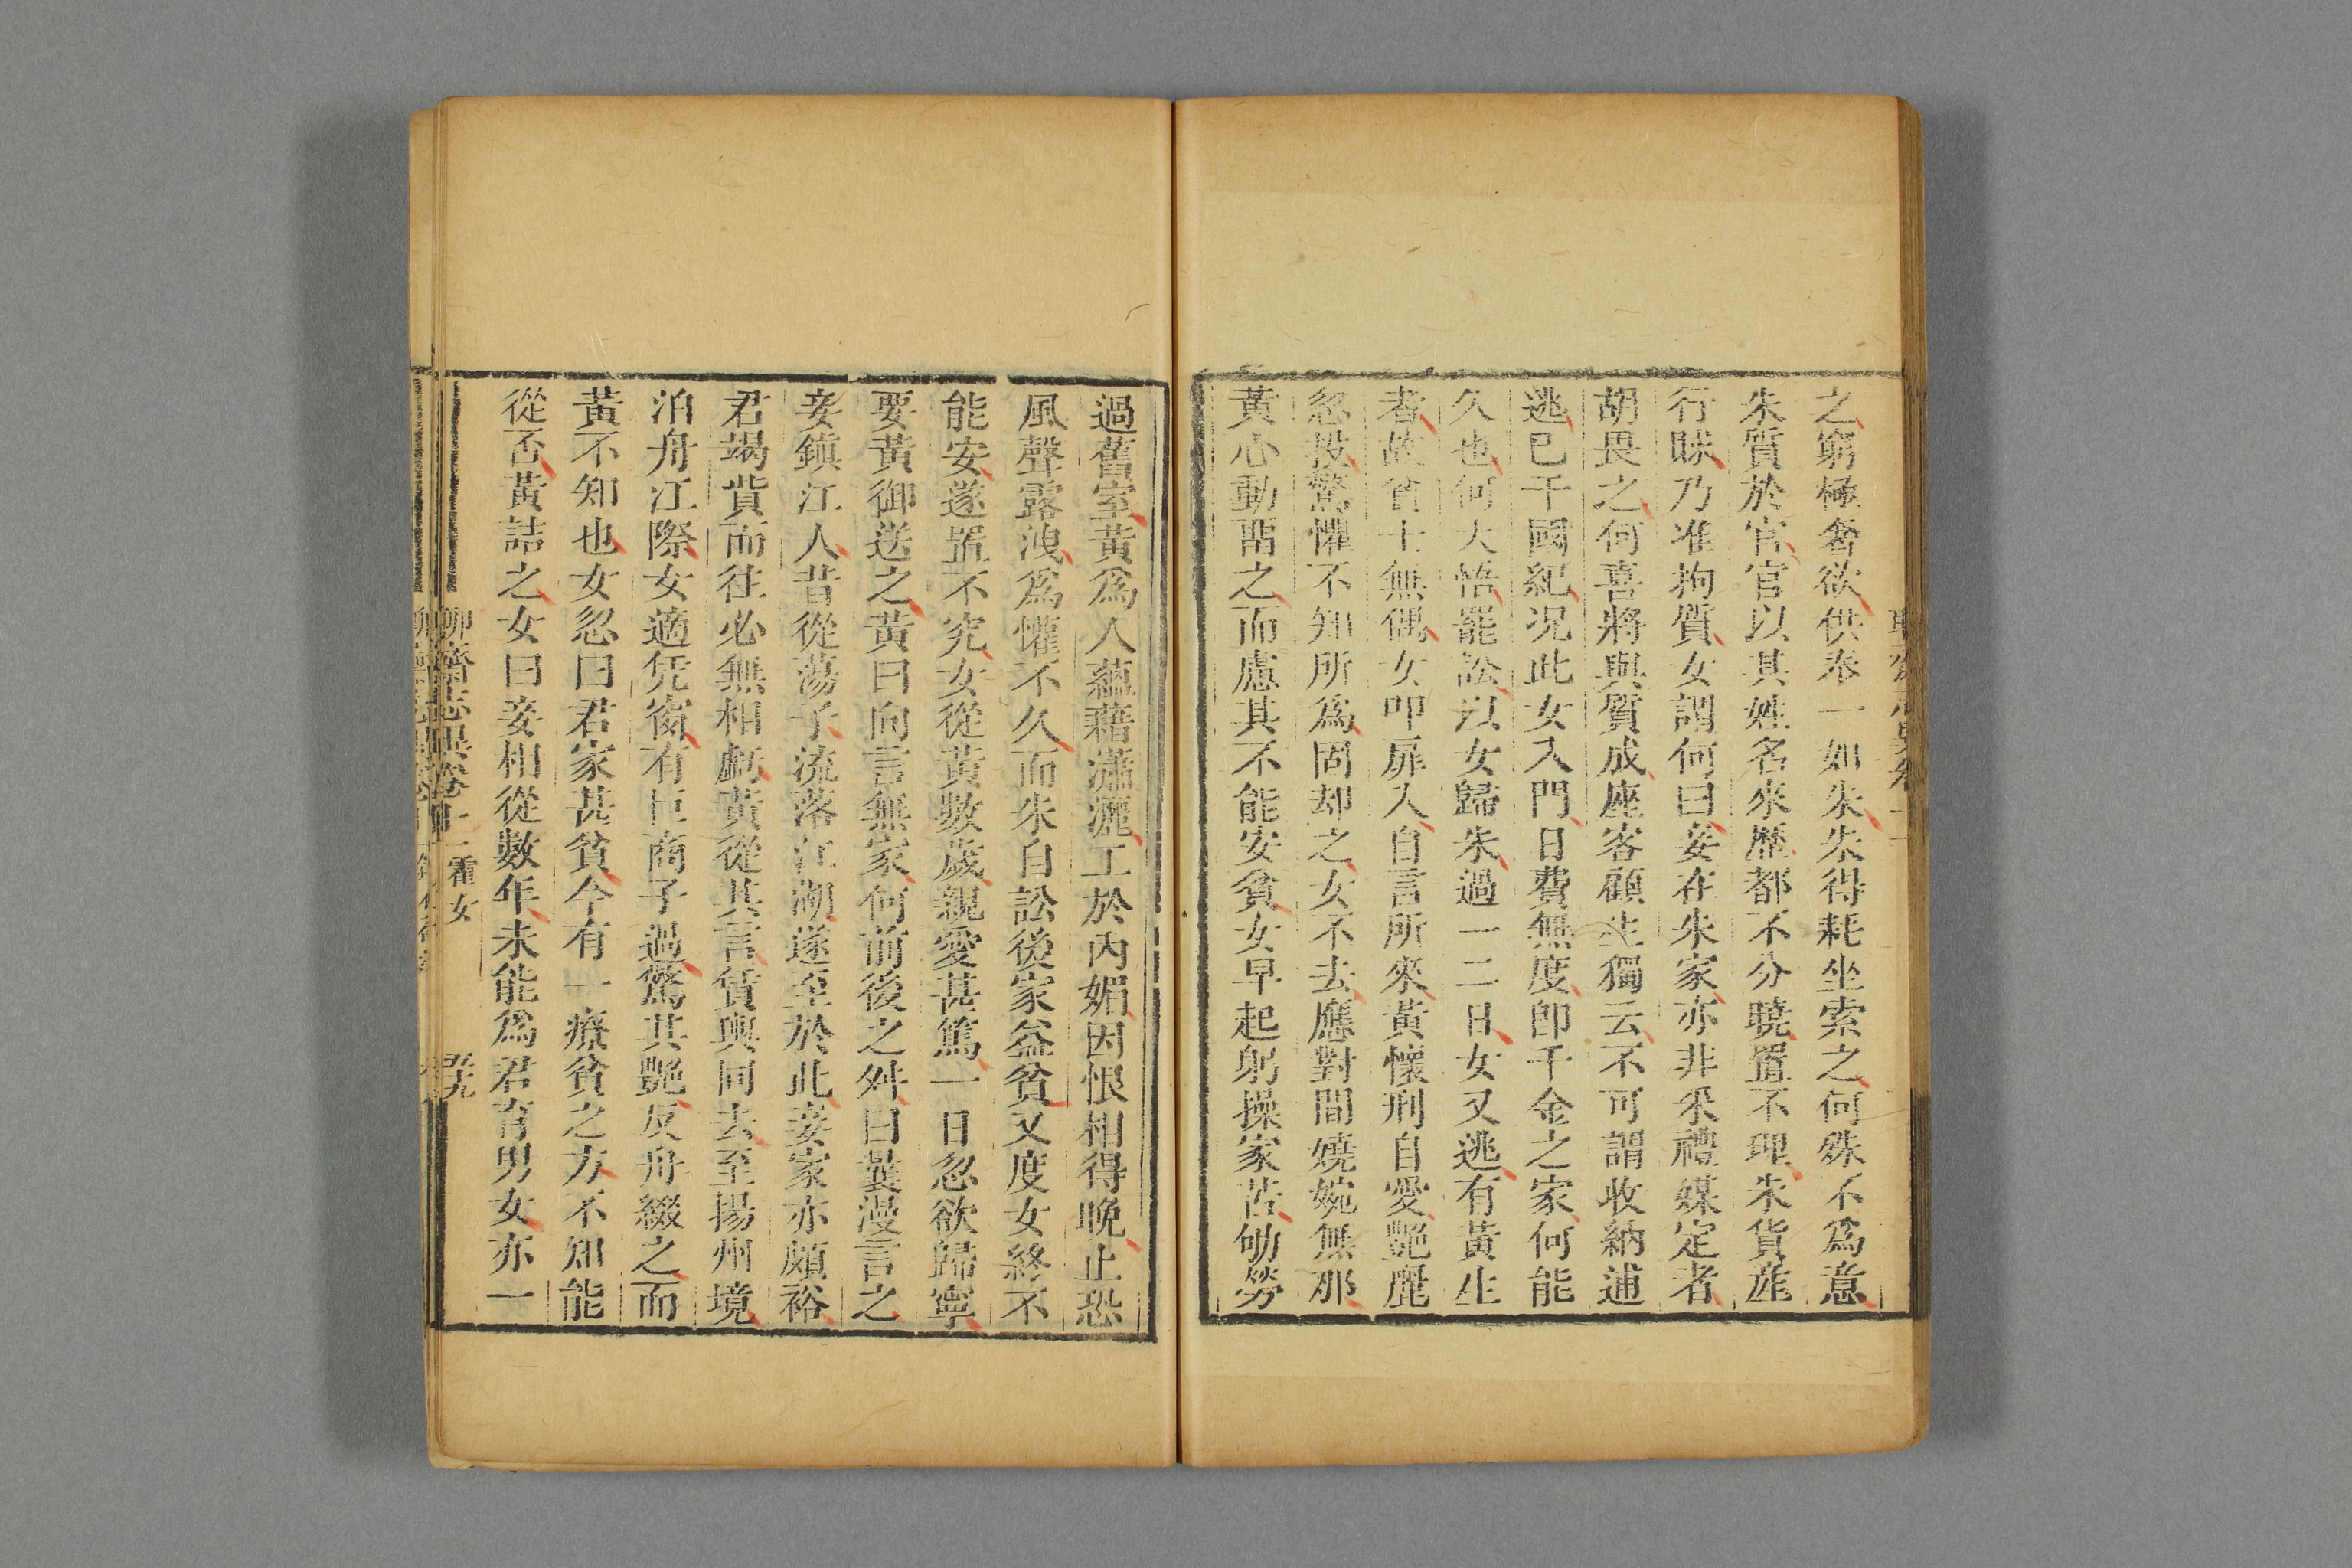 之窮極奢欲供奉一如朱朱得耗坐索之何殊不爲意
朱質於官官以其姓名來歷都不分曉置不理朱貨產
行賕乃准拘質女謂何曰妾在朱家亦非采禮媒定者
胡畏之何喜將與質成座客顧生獨云不可謂收納逋
逃已干國紀况此女入門日費無度即千金之家何能
久也何大悟罷訟以女歸朱過一二日女又逃有黃生
者故貧士無偶女叩扉入自言所來黃懷刑自愛艷麗
忽投驚懼不知所爲固却之女不去應對間嬈婉無那
黃心動畱之而慮其不能安貧女早起躬操家苦劬勞
過舊室黃爲人蘊藉瀟灑工於內媚因恨相得晩止恐
風聲露洩爲懽不久而朱自訟後家益貧又度女終不
能安遂置不究女從黃數歲親愛甚篤一日忽欲歸寧
要黃御送之黃曰向言無家何前後之舛曰曩漫言之
妾鎮江人昔從蕩子流落江湖遂至於此妾家亦頗裕
君竭貲而往必無相虧黃從其言賃輿同去至揚州境
泊舟江際女適凭窗有巨商子過驚其艷反舟綴之而
黃不知也女忽曰君家甚貧今有一療貧之方不知能
從否黃詰之女曰妾相從數年未能爲君育男女亦一
聊齋志異卷十一 霍女